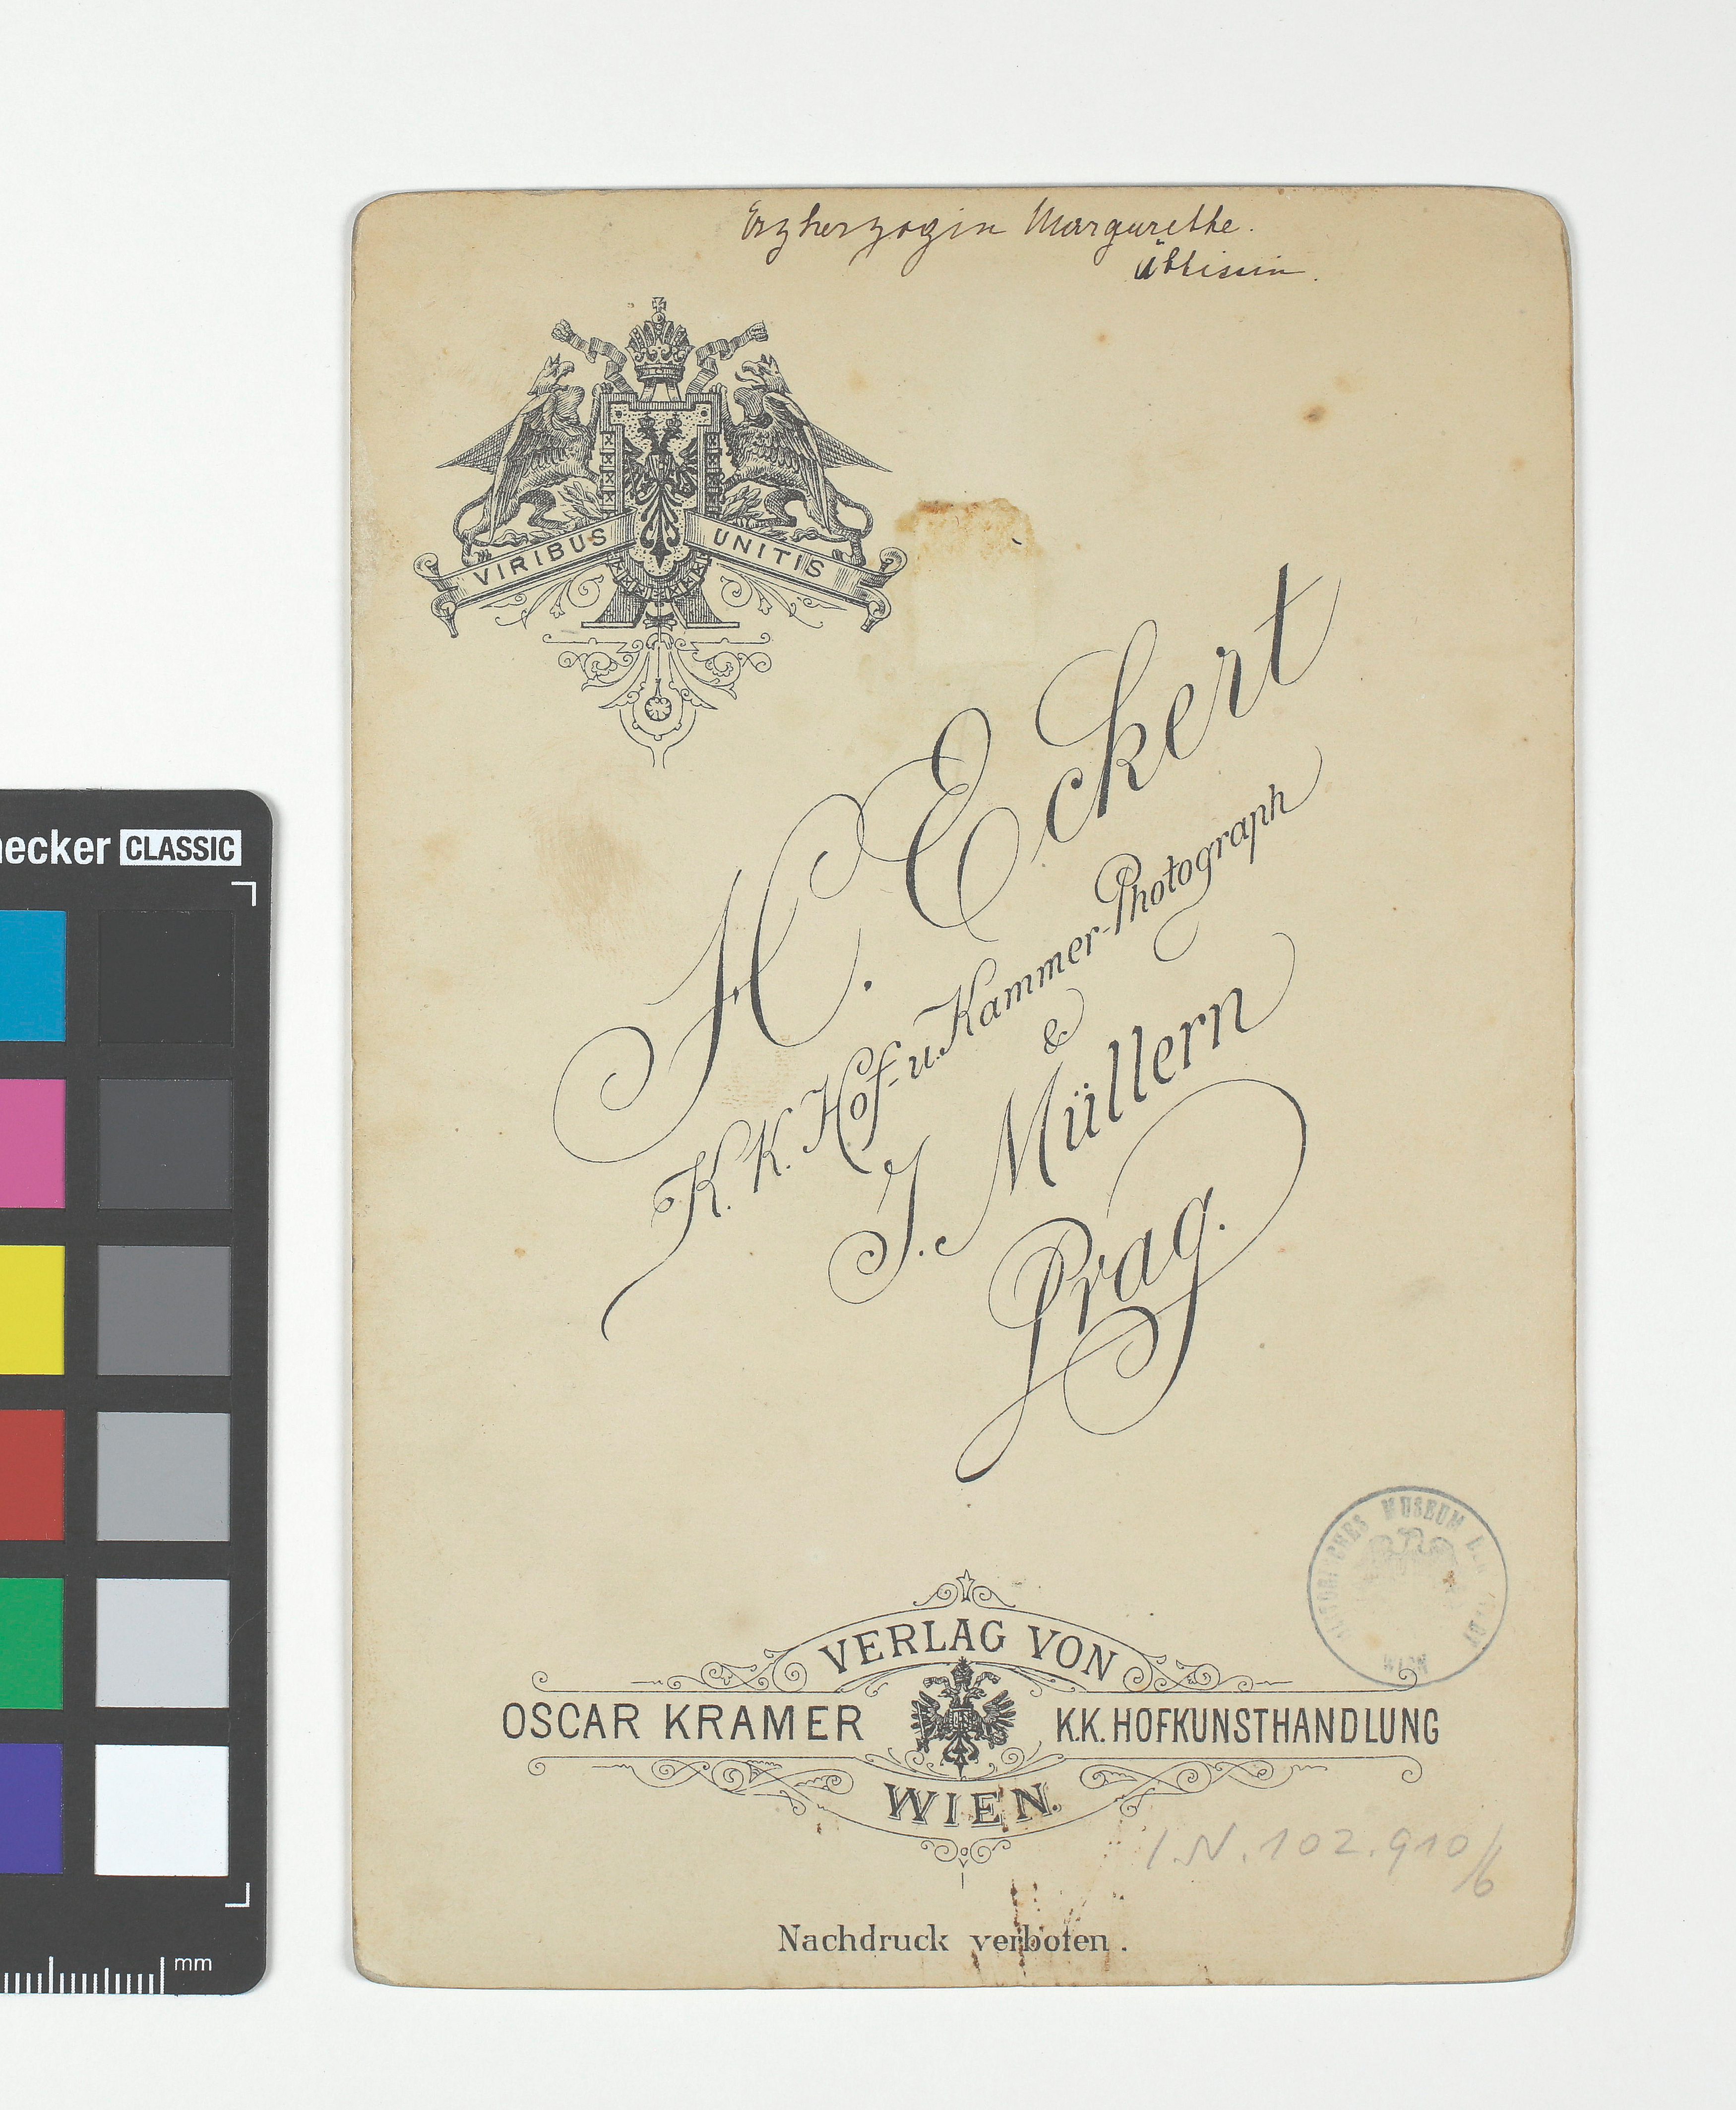 Erzherzogin Margarethe.
Äbtissin.
VIRIBUS UNITIS
H. Eckert
K. K. Hof- u. Kammer-Photograph
&
J. Müllern
Prag.
HISTORISCHES MUSEUM DER STADT WIEN
VERLAG VON
OSCAR KRAMER K.K. HOFKUNSTHANDLUNG
WIEN.
I.N. 102.910/6
Nachdruck verboten.
necker CLASSIC
mm